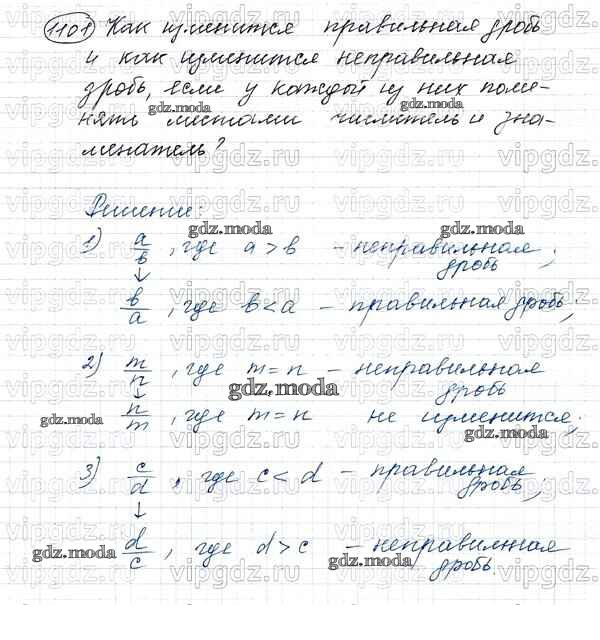 1101 Как изменится правильная дробь
и как изменится неправильная
дробь, если у каждой из них поме-
нять местами числитель и зна-
менатель?
Решение:
1) a/b, где a > b – неправильная дробь;
↓
b/a, где b < a – правильная дробь;
2) m/n, где m = n – неправильная дробь
↓
n/m, где m = n не изменится;
3) c/d, где c < d – правильная дробь;
↓
d/c, где d > c – неправильная дробь.
gdz.moda
vipgdz.ru